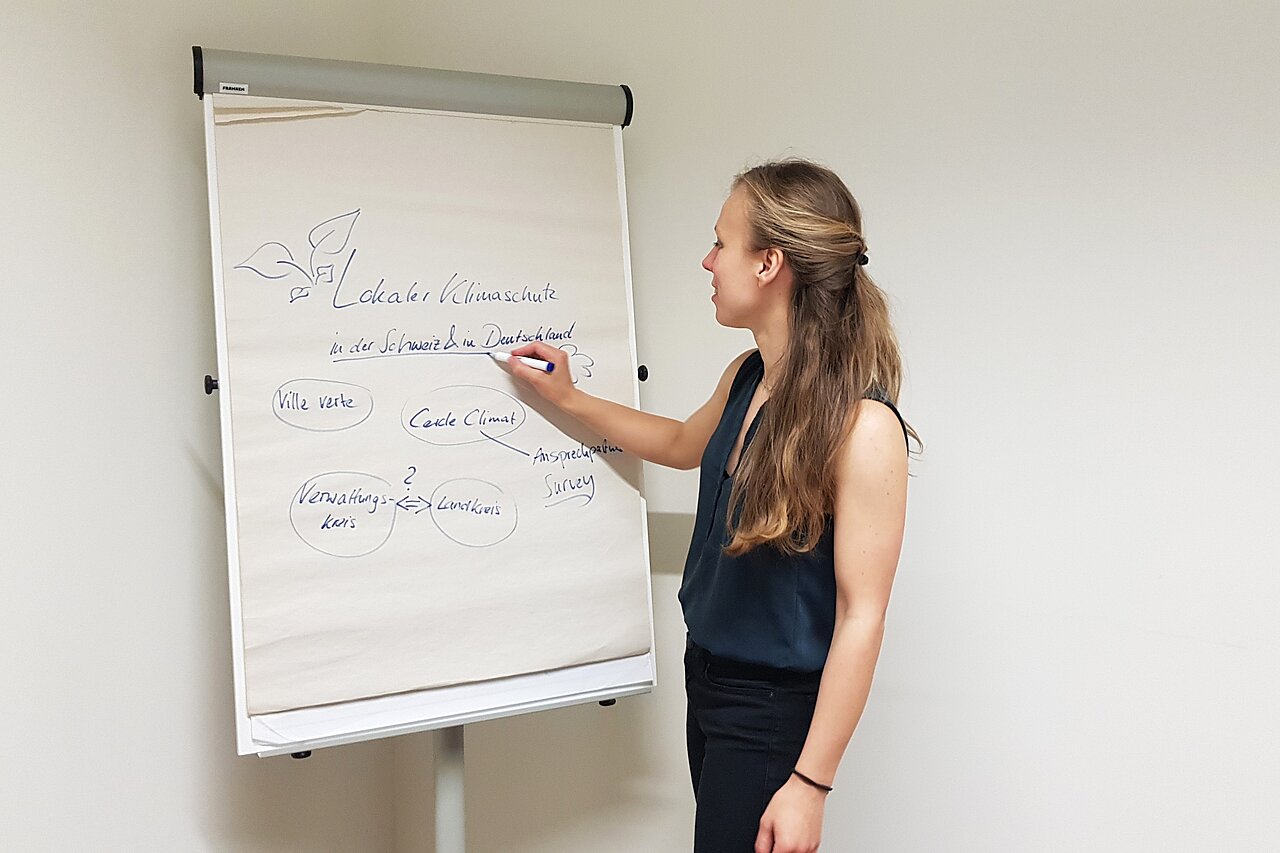 FRANKEN
Lokaler Klimaschutz
in der Schweiz & in Deutschland
Ville verte
Cercle Climat
Ansprechpartner
Survey
?
Verwaltungs-
kreis
Landkreis